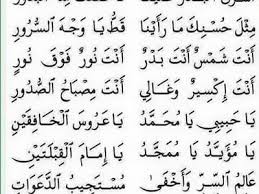 مِثْلَ حُسْنِكَ مَا رَأَيْنَا قَطُّ يَا وَجْهَ ٱلسُّرُورِ
أَنْتَ شَمْسٌ أَنْتَ بَدْرٌ أَنْتَ نُورٌ فَوْقَ نُورِ
أَنْتَ إِكْسِيرٌ وَغَالِي أَنْتَ مِصْبَاحُ ٱلصُّدُورِ
يَا حَبِيبِي يَا مُحَمَّدْ يَا عَرُوسَ ٱلْخَافِقَيْنِ
يَا مُؤَيَّدْ يَا مُمَجَّدْ يَا إِمَامَ ٱلْقِبْلَتَيْنِ
عَالِمُ ٱلسِّرِّ وَأَخْفَى مُسْتَجِيبُ ٱلدَّعَوَاتِ